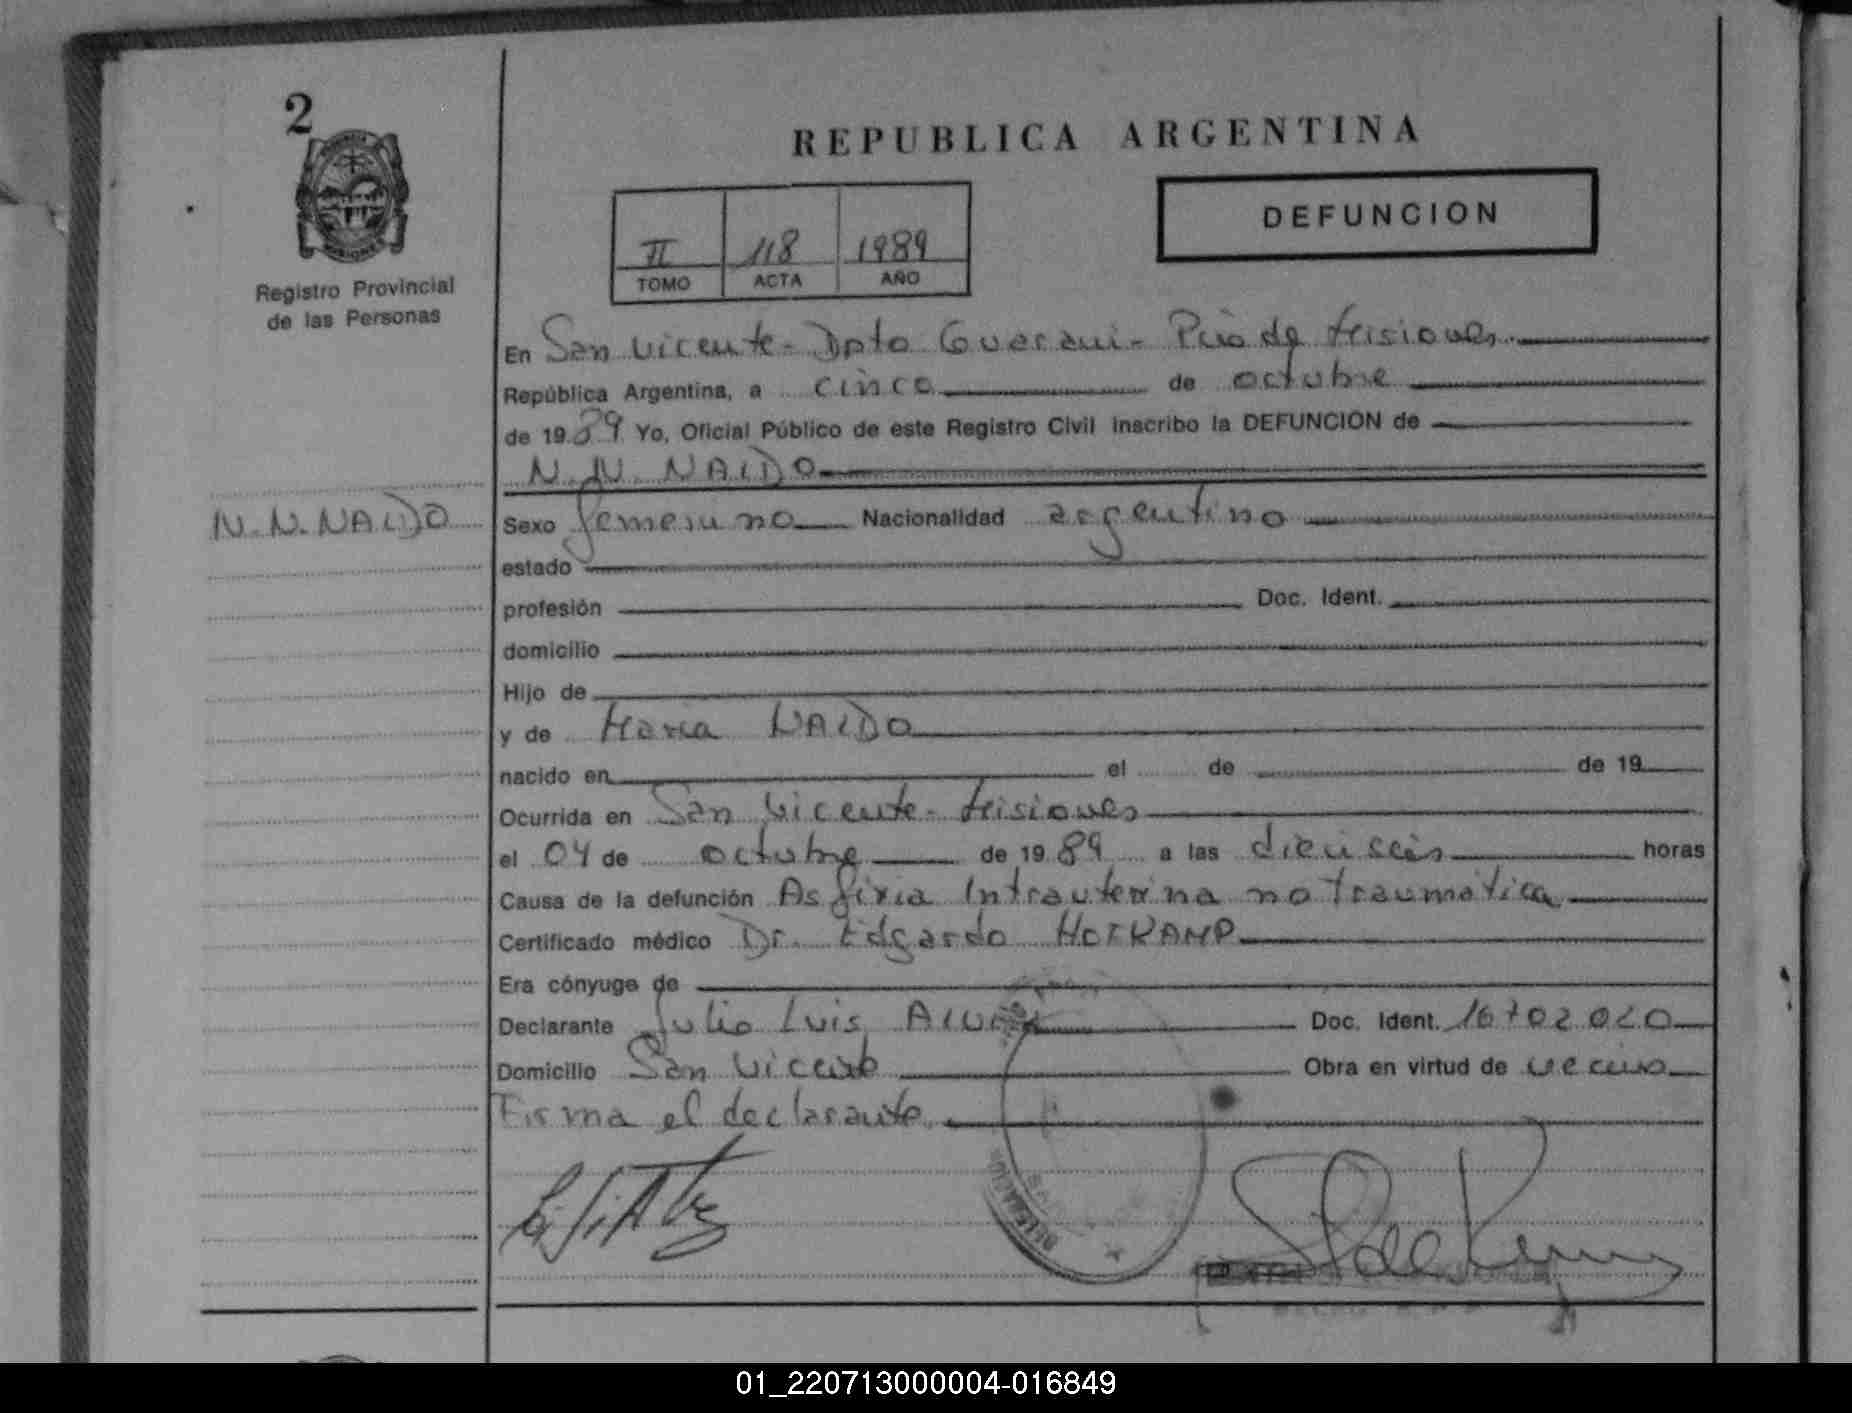 2
REPUBLICA ARGENTINA
DEFUNCION
II 118 1989
TOMO ACTA AÑO
Registro Provincial
de las Personas
En San Vicente - Dpto Guarani - Pcia de Misiones
República Argentina, a cinco de octubre
de 1989 Yo, Oficial Público de este Registro Civil inscribo la DEFUNCION de
N. N. NALDO
N. N. NALDO
Sexo femenino Nacionalidad argentino
estado
profesión Doc. Ident.
domicilio
Hijo de
y de Maria NALDO
nacido en el de de 19
Ocurrida en San Vicente - Misiones
el 04 de octubre de 1989 a las dieciseis horas
Causa de la defunción Asfixia Intrauterina no traumática
Certificado médico Dr. Edgardo
Era cónyuge de
Declarante Julio Luis Doc. Ident. 16702020
Domicilio San Vicente Obra en virtud de vecino
Firma el declarante
DELEGACION
01_220713000004-016849